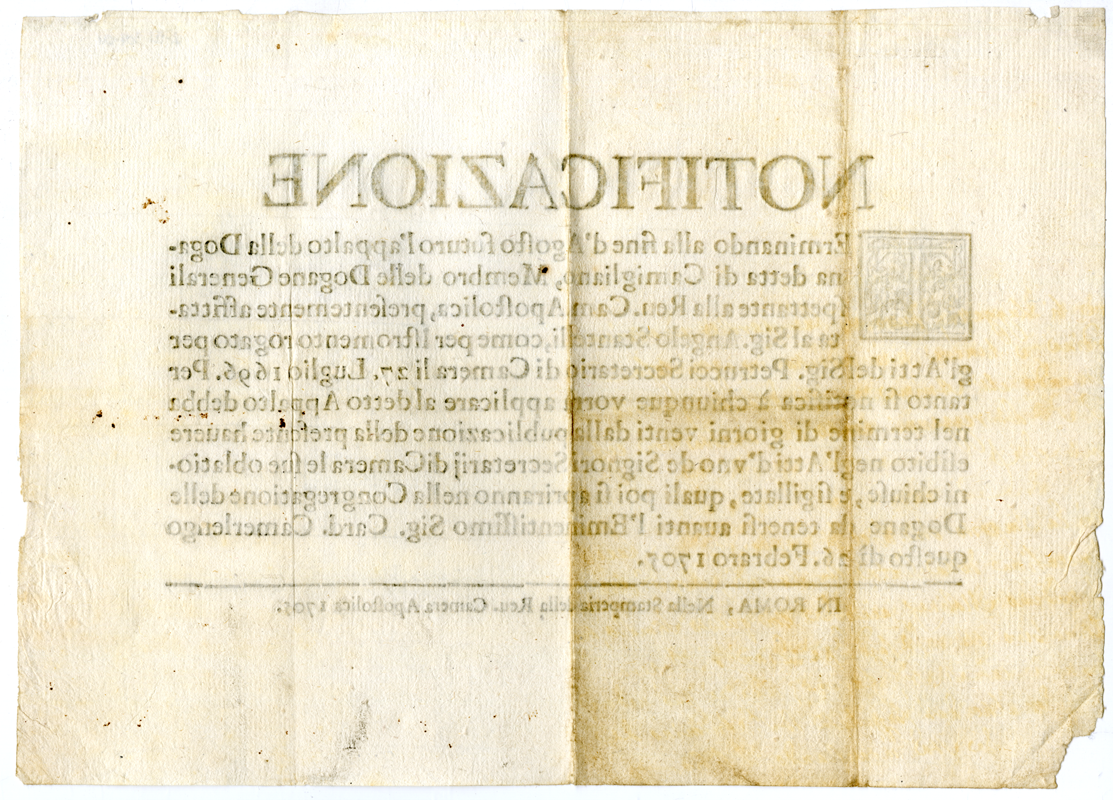 NOTIFICAZIONE
TErminando alla fine d'Agosto futuro l'appalto della Doga-
na detta di Camigliano, Membro delle Dogane Generali
spetrante alla Reu. Cam. Apostolica, presentemente affitta-
ta al Sig. Angelo Stantelli, come per Istromento rogato per
gl'Atti del Sig. Petrucci Secretario di Camera li 27. Luglio 1696. Per
tanto si notifica à chiunque vorrà applicare al detto Appalto debba
nel termine di giorni venti dalla publicazione della presente hauere
esibito negl'Atti d'vno de Signori Secretarij di Camera le sue oblatio-
ni chiuse, e sigillate, quali poi si apriranno nella Congregatione delle
Dogane da tenersi auanti l'Eminentissimo Sig. Card. Camerlengo
questo dì 26. Febraro 1705.
IN ROMA, Nella Stamperia della Reu. Camera Apostolica 1705.